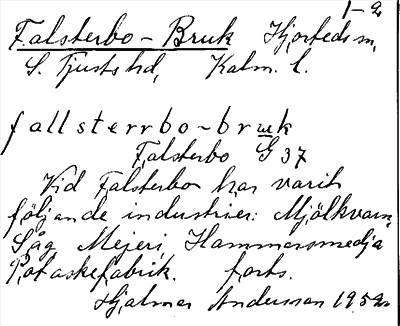 1-2
Falsterbo-Bruk Hjorteds sn,
S. Tjusts hd, Kalm. l.
fallsterrbo-bruk
Falsterbo G 37
Vid Falsterbo har varit
följande industrier: Mjölkvarn,
Såg Mejeri, Hammarsmedja
Pottaskefabrik. forts.
Hjalmar Andersson 1952